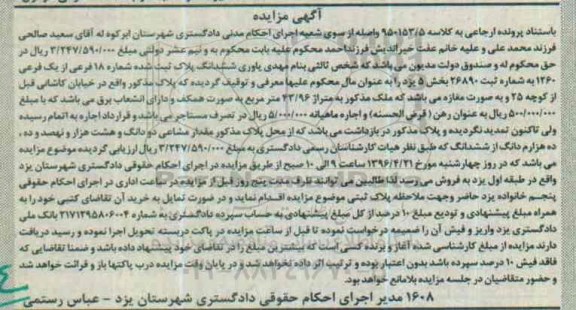 آگهی مزایده
باستناد پرونده ارجاعی به کلاسه ۹۵۰۱۵۳/۵ واصله از سوی شعبه اجرای احکام مدنی دادگستری شهرستان ابرکوه له آقای سعید صالحی
فرزند محمد علی و علیه خانم عفت خیراندیش فرزند احمد محکوم علیه بابت محکوم به و نیم عشر دولتی مبلغ ۳/۲۴۷/۵۹۰/۰۰۰ ریال در
حق محکوم له و صندوق دولت مدیون می باشد که شخص ثالثی بنام مهدی یاوری ششدانگ پلاک ثبت شده شماره ۱۸ فرعی از یک فرعی
۱۲۶۰ به شماره ثبت ۲۶۸۹۰ بخش ۵ یزد را به عنوان مال محکوم علیها معرفی و توقیف گردیده که پلاک مذکور واقع در خیابان کاشانی قبل
از کوچه ۲۵ و به صورت مغازه می باشد که ملک مذکور به متراژ ۲۳/۹۶ متر مربع به صورت همکف و دارای انشعاب برق می باشد که با مبلغ
۵۰۰/۰۰۰/۰۰۰ ریال به عنوان رهن (قرض الحسنه) و اجاره ماهیانه ۵/۰۰۰/۰۰۰ ریال در تصرف مستاجر می باشد و قرارداد اجاره به اتمام رسیده
ولی تاکنون تمدید نگردیده و پلاک مذکور در بازداشت می باشد که از محل پلاک مذکور مقدار مشاعی دو دانگ و هشت هزار و نهصد و ده ،
ده هزارم دانگ از ششدانگ که طبق نظر هیات کارشناسان رسمی دادگستری به مبلغ ۳/۲۴۷/۵۹۰/۰۰۰ ریال ارزیابی گردیده موضوع مزایده
می باشد که در روز چهارشنبه مورخ ۱۳۹۶/۴/۲۱ ساعت ۹ الی ۱۰ صبح از طریق مزایده در اجرای احکام حقوقی دادگستری شهرستان یزد
واقع در طبقه اول یزد به فروش می رسد لذا طالبین می توانند ظرف مدت پنج روز قبل از مزایده در ساعت اداری در اجرای احکام حقوقی
پنجم خانواده یزد حاضر وجهت ملاحظه پلاک ثبتی موضوع مزایده اقدام نماید و در صورت تمایل به خرید آن تقاضای کتبی خود را به
همراه مبلغ پیشنهادی و تودیع مبلغ ۱۰ درصد از کل مبلغ پیشنهادی به حساب سپرده دادگستری به شماره ۲۱۷۱۲۹۵۸۰۶۰۰۴ بانک ملی
دادگستری یزد واریز و فیش آن را ضمیمه درخواست نموده تا قبل از ساعت مزایده در پاکت دربسته تحویل اجرا نموده و رسید دریافت
دارند مزایده از مبلغ کارشناسی شده آغاز و برنده کسی است که بیشترین مبلغ را در تقاضای خود پیشنهاد داده باشد و ضمنا تقاضایی که
فاقد فیش ۱۰ درصد سپرده باشد بدون اعتبار بوده و ترتیب اثر داده نخواهد شد و در پایان وقت مزایده درب پاکتها باز و قرائت خواهد شد
و حضور متقاضیان در جلسه مزایده بلامانع خواهد بود.
۱۶۰۸ مدیر اجرای احکام حقوقی دادگستری شهرستان یزد - عباس رستمی